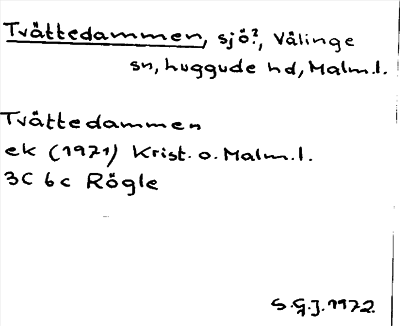 Tvättedammen, sjö?, Välinge
sn, Luggude hd, Malm.l.
Tvättedammen
ek (1971) Krist. o. Malm.l.
3C 6c Rögle
S.G.J. 1972.